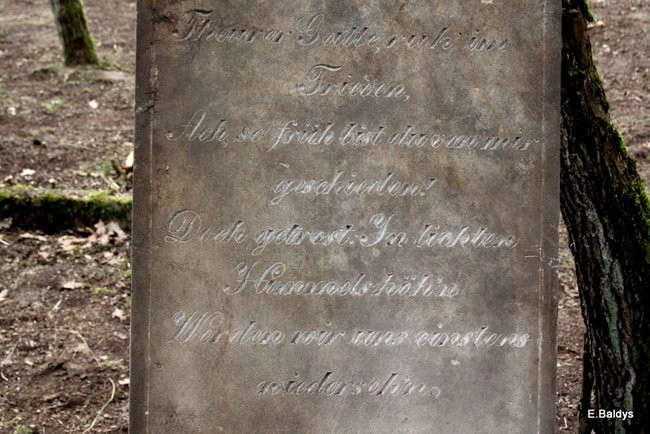 Theurer Gatte, ruh' im
Frieden,
Ach, so früh bist du von mir
geschieden!
Doch getrost: In lichten
Himmelshöh'n
Werden wir uns einstens
wiederseh'n.
E.Baldys